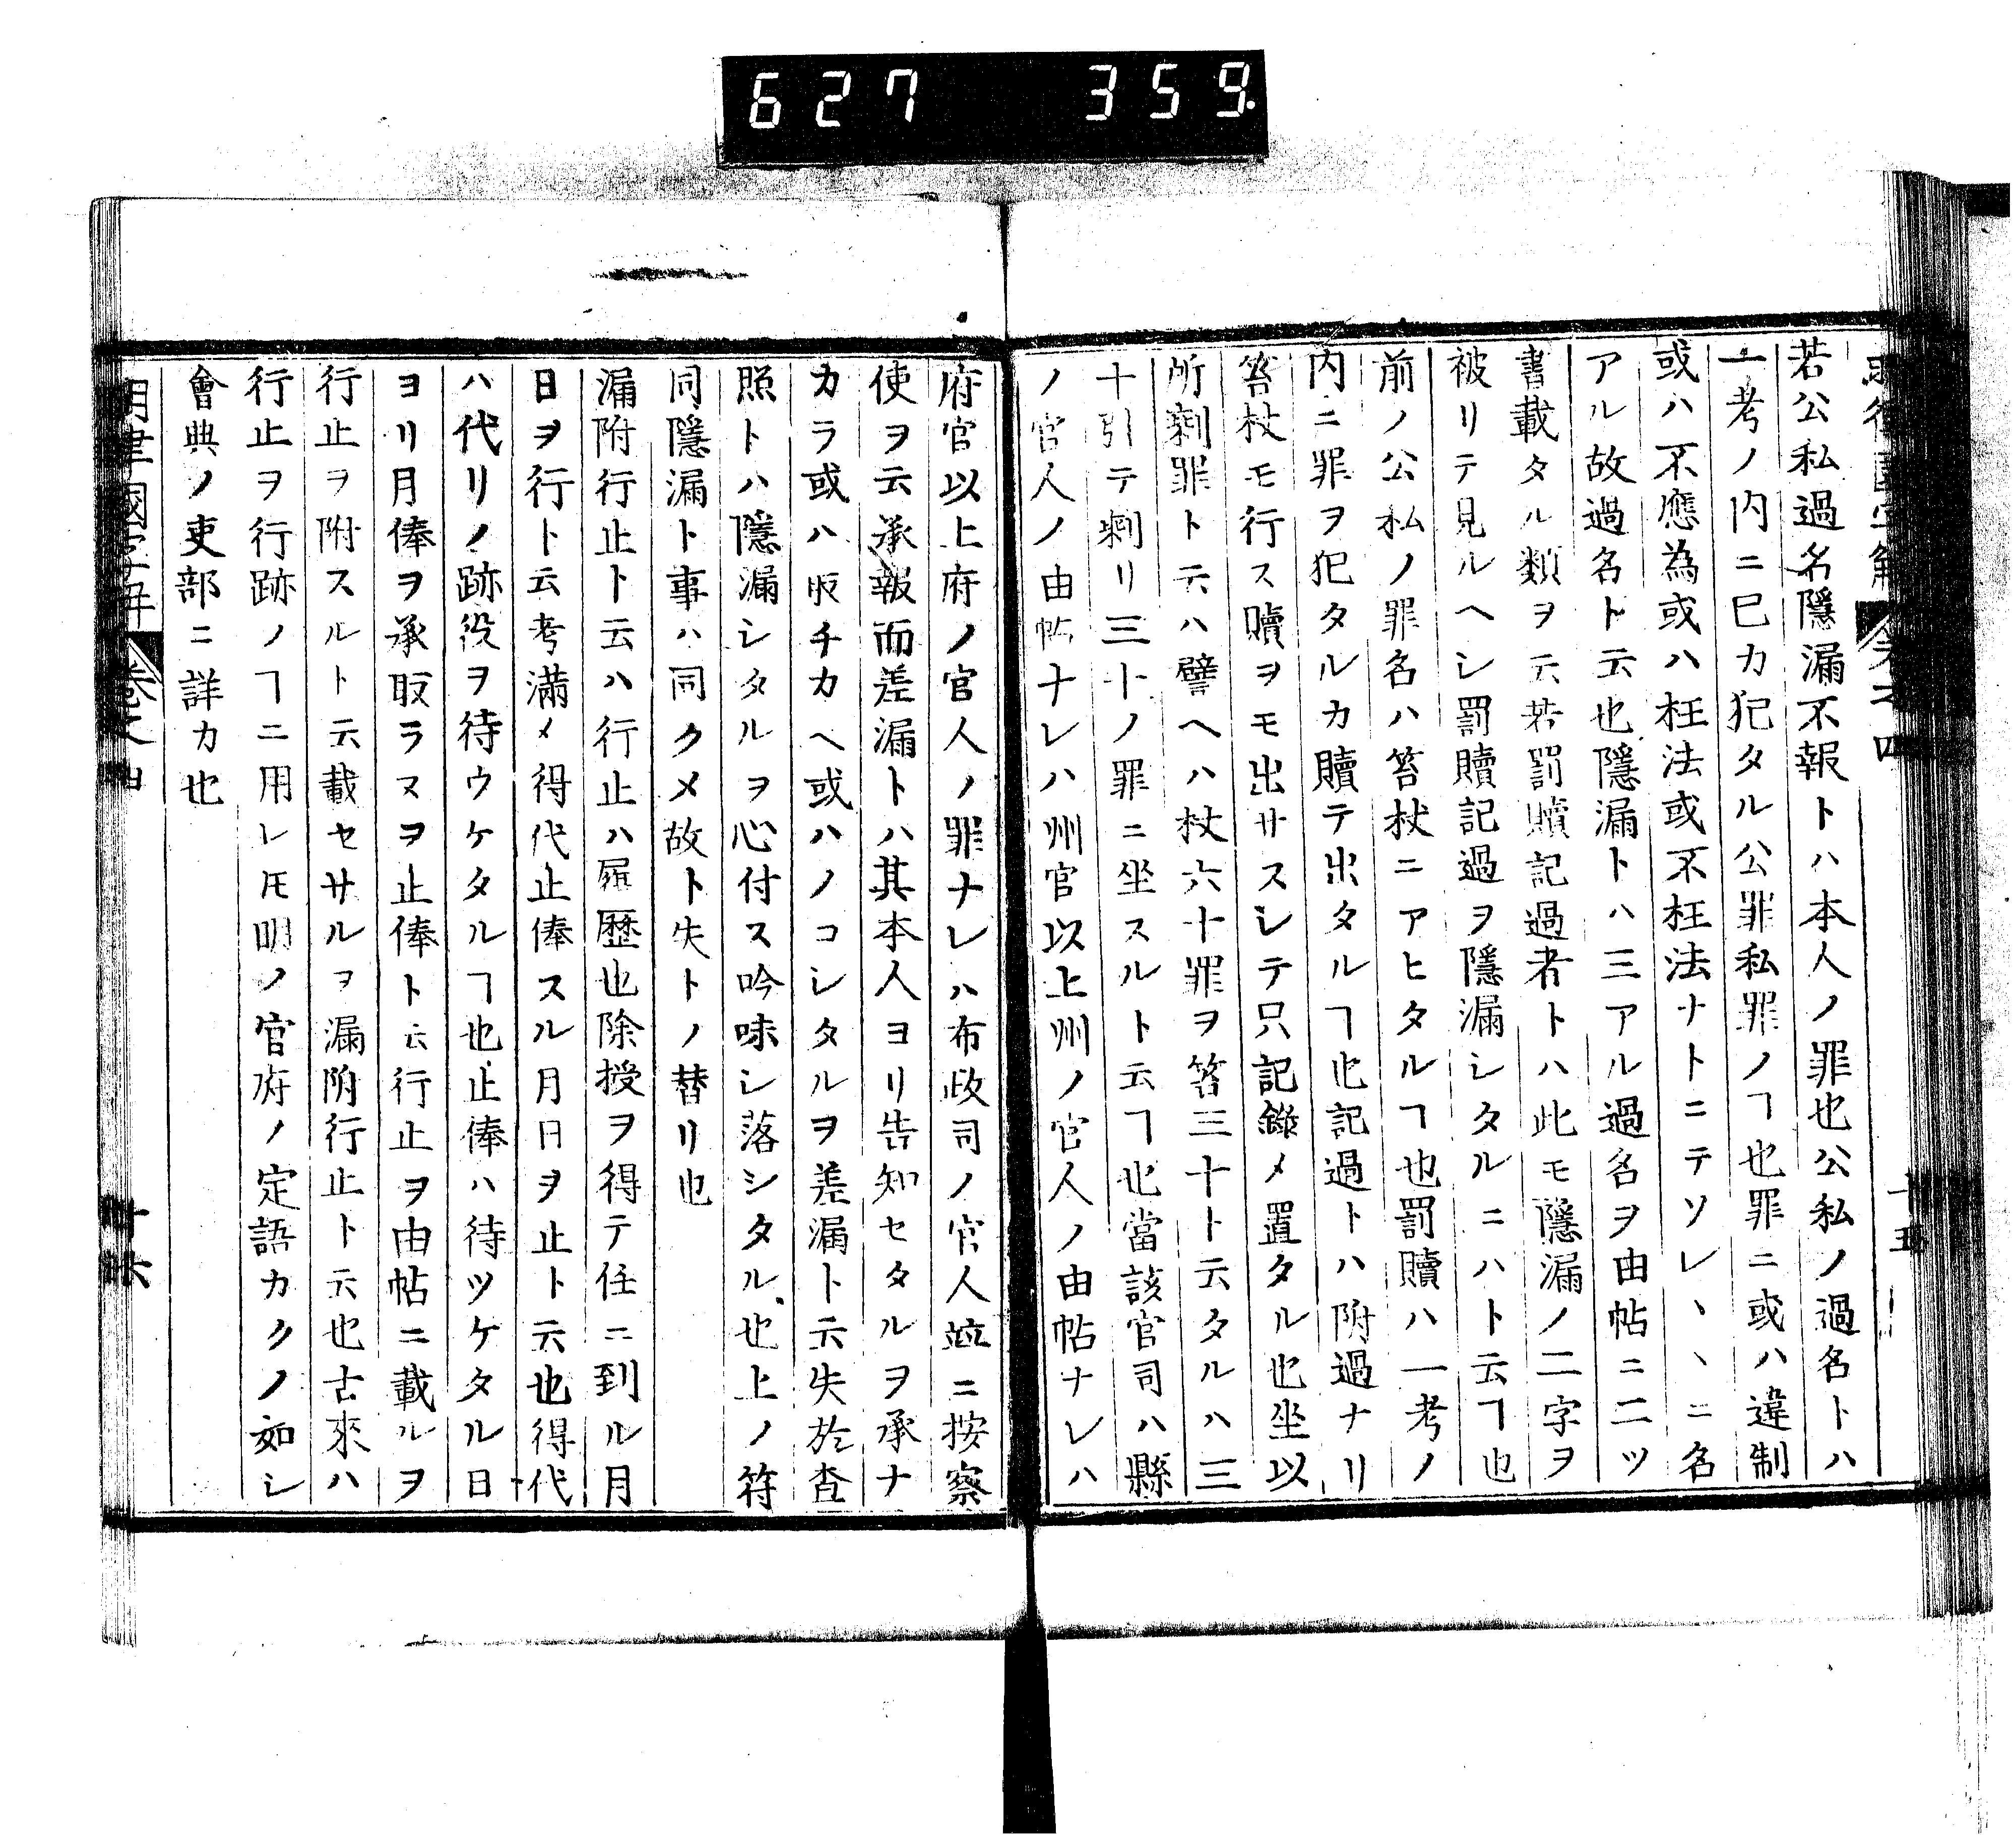 627 359
若公私過名隱漏不報トハ本人ノ罪也公私ノ過名トハ
一考ノ内ニ已カ犯タル公罪私罪ノヿ也罪ニ或ハ違制
或ハ不應為或ハ枉法或不枉法ナトニテソレ丶丶ニ名
アル故過名ト云也隱漏トハ三アル過名ヲ由帖ニ二ツ
書載タル類ヲ云若罰贖記過者トハ此モ隱漏ノ二字ヲ
被リテ見ルヘシ罰贖記過ヲ隱漏シタルニハト云ヿ也
前ノ公私ノ罪名ハ笞杖ニアヒタルヿ也罰贖ハ一考ノ
内ニ罪ヲ犯タルカ贖テ出タルヿ也記過トハ附過ナリ
笞杖モ行ス贖ヲモ出サスシテ只記錄メ置タル也坐以
所剩罪ト云ハ譬ヘハ杖六十罪ヲ笞三十ト云タルハ三
十引テ剩リ三十ノ罪ニ坐スルト云ヿ也當該官司ハ縣
ノ官人ノ由帖ナレハ州官以上州ノ官人ノ由帖ナレハ
府官以上府ノ官人ノ罪ナレハ布政司ノ官人竝ニ按察
使ヲ云承報而差漏トハ其本人ヨリ告知セタルヲ承ナ
カラ或ハ取チカヘ或ハノコシタルヲ差漏ト云失於查
照トハ隱漏シタルヲ心付ス吟味シ落シタル也上ノ符
同隱漏ト事ハ同クメ故ト失トノ替リ也
漏附行止ト云ハ行止ハ履歷也除授ヲ得テ任ニ到ル月
日ヲ行ト云考滿メ得代止俸スル月日ヲ止ト云也得代
ハ代リノ跡役ヲ待ウケタルヿ也止俸ハ待ツケタル日
ヨリ月俸ヲ承取ラヌヲ止俸ト云行止ヲ由帖ニ載ルヲ
行止ヲ附スルト云載セサルヲ漏附行止ト云也古來ハ
行止ヲ行跡ノヿニ用レ𪜈明ノ官府ノ定語カクノ如シ
會典ノ吏部ニ詳カ也